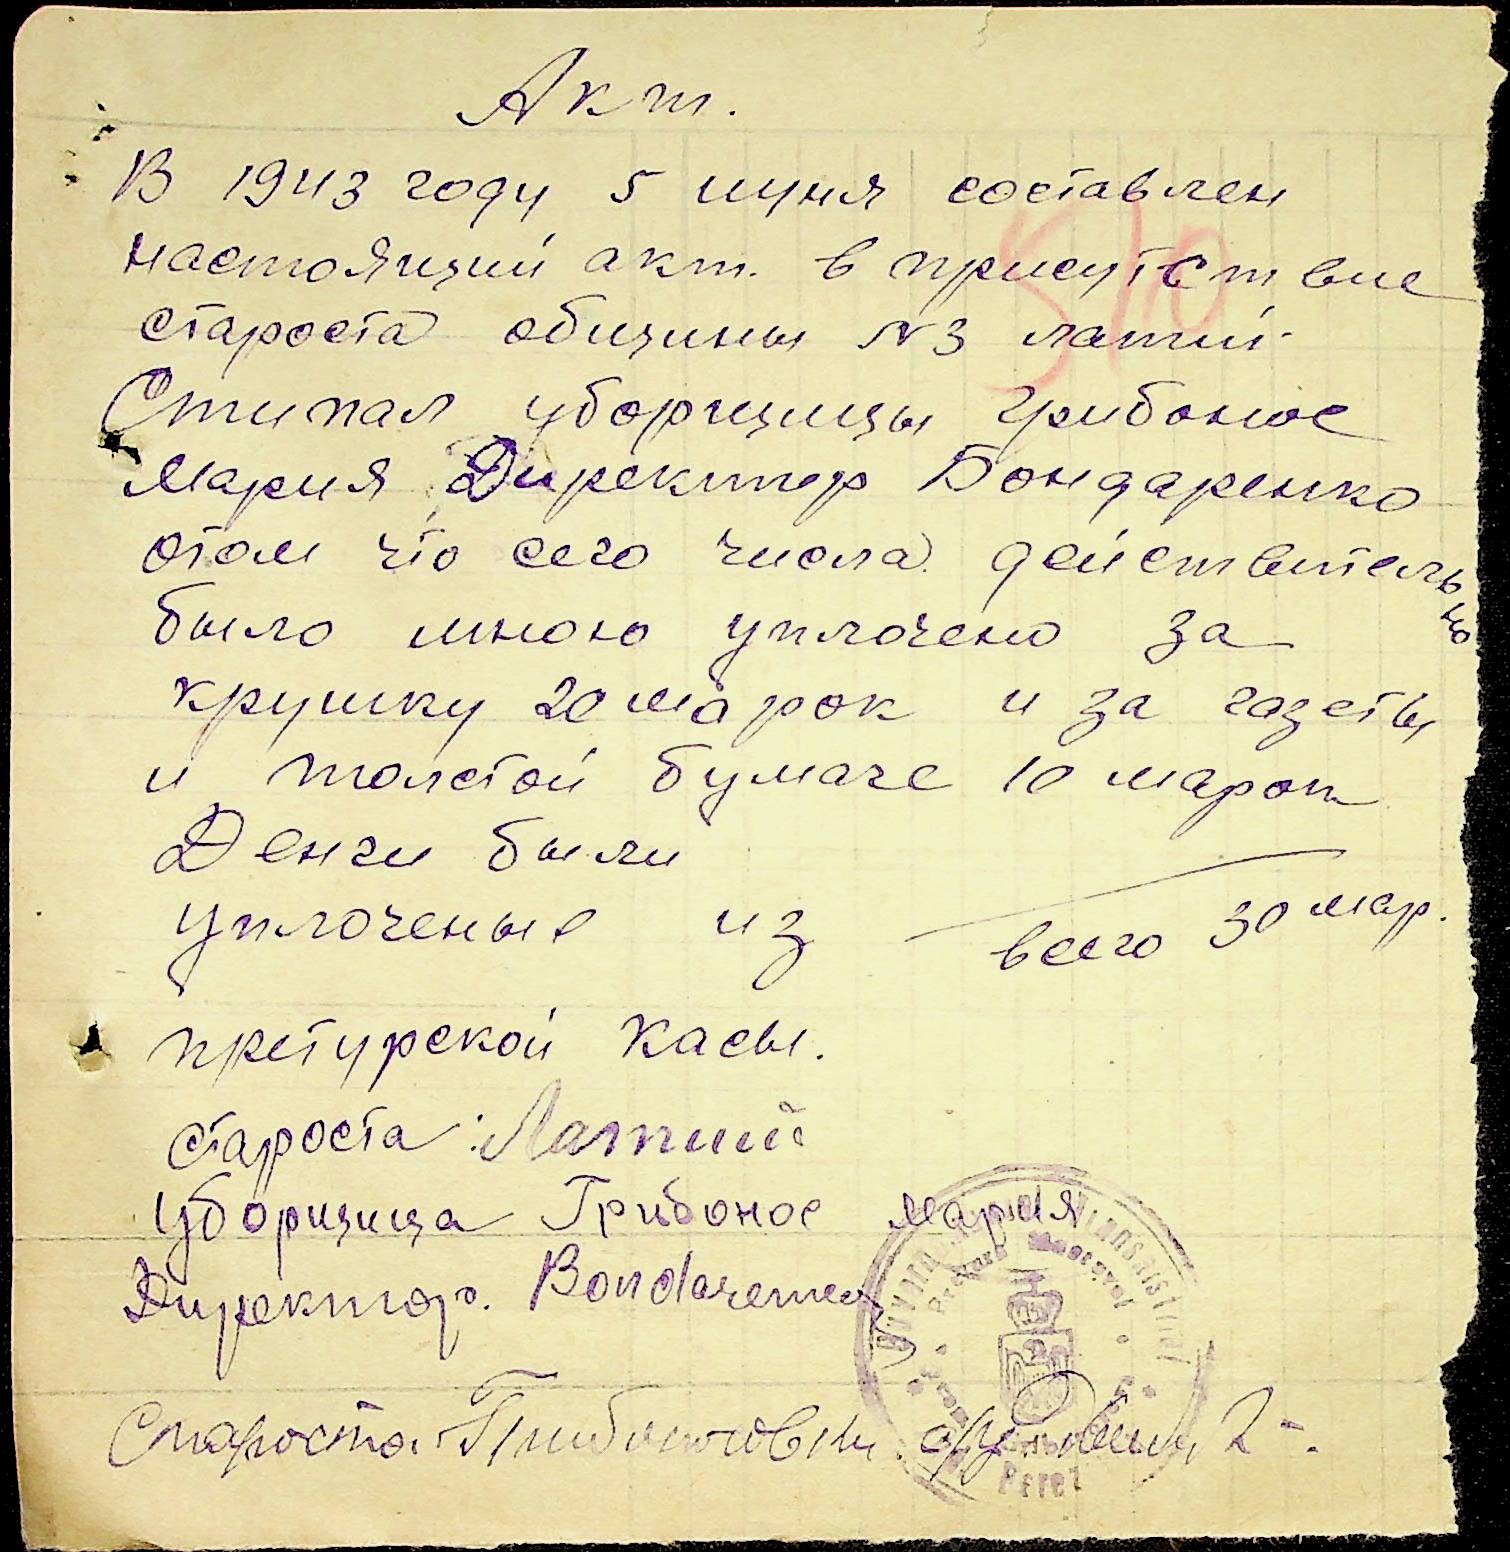 Акт.
В 1943 году 5 июня составлен
настоящий акт. в присутствие
староста общины N3 латий
Стипал уборщицы Грибонос
Мария Директор Бондаренко
отом что сего числа действительно
было мною уплочено за
крушку 20 марок и за газеты
и толстой бумаге 10 марок
Денги были
всего 30 мар.
уплоченые из
претурской касы.
староста: Латий
Уборщица Грибонос Мария
Директор. Bondarenco
Староста
2-.